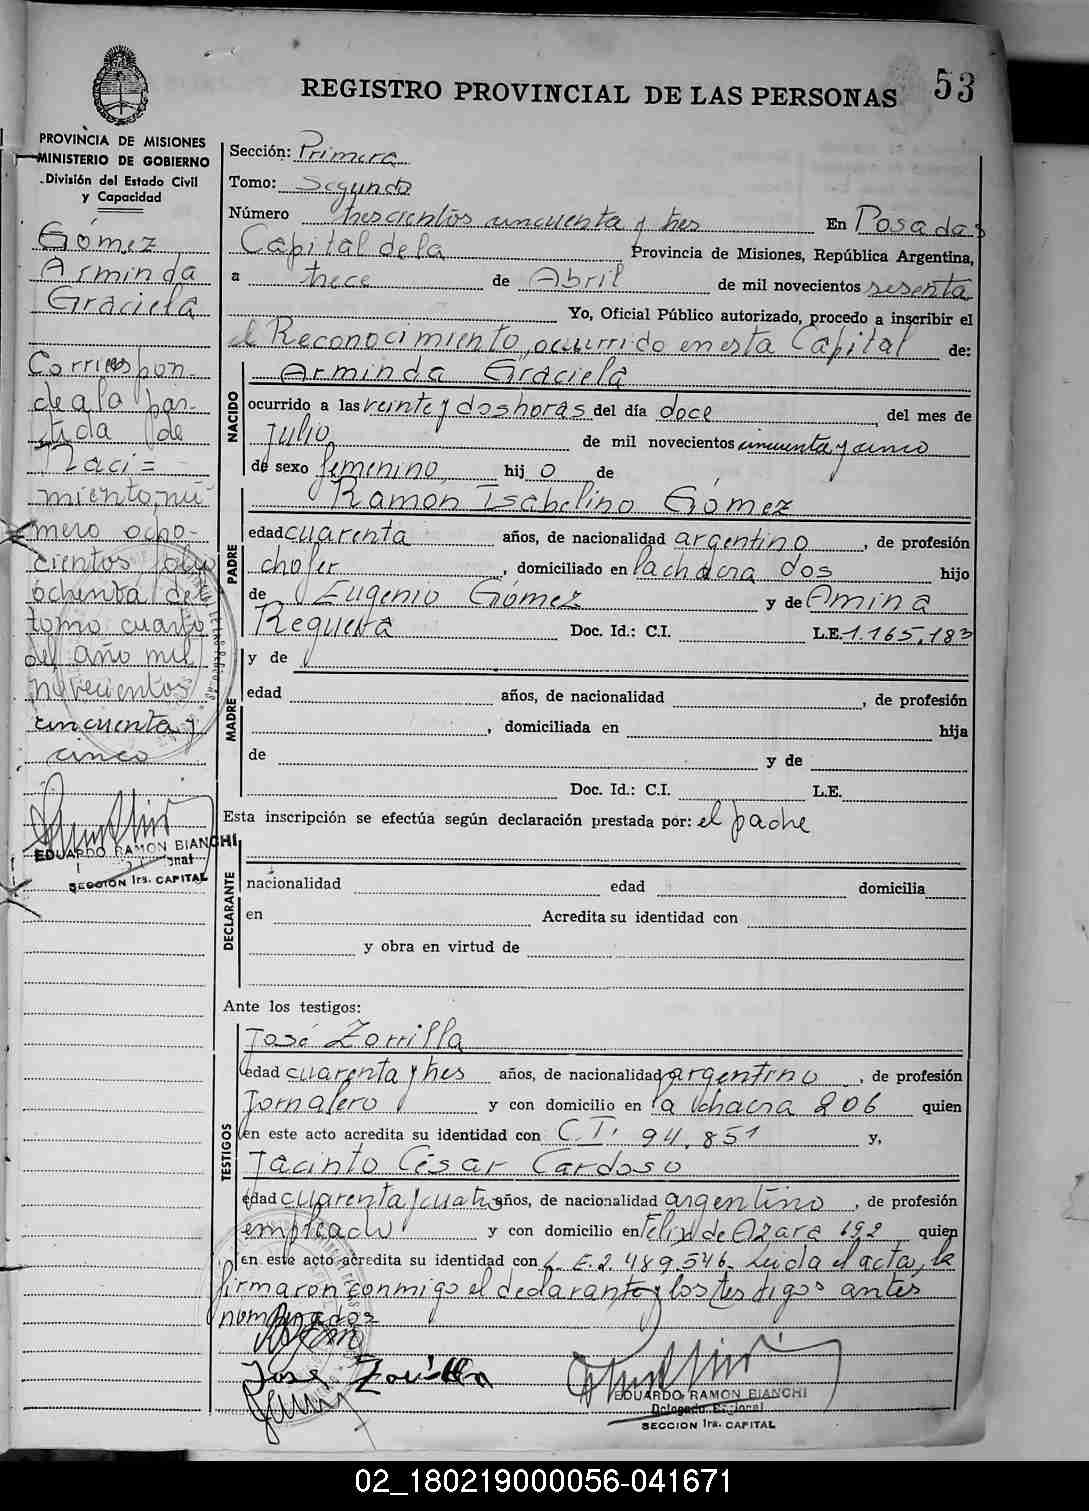 REGISTRO PROVINCIAL DE LAS PERSONAS 53
PROVINCIA DE MISIONES
MINISTERIO DE GOBIERNO
División del Estado Civil
y Capacidad
Gómez
Arminda
Graciela
Corrrespon-
de a la par-
tida de
Naci=
miento, nú-
mero ocho-
cientos
ochenta del
tomo cuarto
del año mil
novecientos
cincuenta y
cinco
EDUARDO RAMON BIANCHI
SECCION 1ra. CAPITAL
Sección: Primera
Tomo: Segundo
Número trescientos cincuenta y tres En Posadas
Capital de la Provincia de Misiones, República Argentina,
a trece de Abril de mil novecientos sesenta
Yo, Oficial Público autorizado, procedo a inscribir el
el Reconocimiento, ocurrido en esta Capital de:
NACIDO
Arminda Graciela
ocurrido a las veinte y dos horas del día doce del mes de
Julio de mil novecientos cincuenta y cinco
de sexo femenino, hij o de
PADRE
Ramon Isabelino Gómez
edad cuarenta años, de nacionalidad argentino, de profesión
chofer, domiciliado en la chacra dos hijo
de Eugenio Gómez y de Amina
Requera Doc. Id.: C.I. L.E. 1.165.183
MADRE
y de
edad años, de nacionalidad , de profesión
, domiciliada en hija
de y de
Doc. Id.: C.I. L.E.
Esta inscripción se efectúa según declaración prestada por: el padre
DECLARANTE
nacionalidad edad domicilia
en Acredita su identidad con
y obra en virtud de
Ante los testigos:
TESTIGOS
José Zorrilla
edad cuarenta y tres años, de nacionalidad argentino, de profesión
Jornalero y con domicilio en la chacra 206 quien
en este acto acredita su identidad con C.I. 94.851 y,
Jacinto César Cardoso
edad cuarenta y cuatro años, de nacionalidad argentino, de profesión
empleado y con domicilio en Felix de Azara 192 quien
en este acto acredita su identidad con L.E. 2.489.546. Leida el acta, la
firmaron conmigo el declarante y los testigos antes
nombrados
José Zorrilla
EDUARDO RAMON BIANCHI
Delegado Regional
SECCION 1ra. CAPITAL
02_180219000056-041671